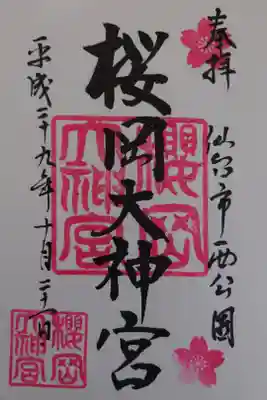 奉拝
仙台市西公園
桜岡大神宮
櫻岡大神宮
平成二十九年十月二十一日
櫻岡大神宮